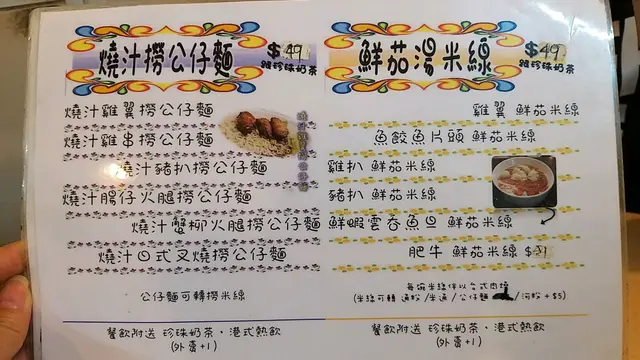 燒汁撈公仔麵 $49
跟珍珠奶茶
燒汁雞翼撈公仔麵
燒汁雞串撈公仔麵
燒汁豬扒撈公仔麵
燒汁腸仔火腿撈公仔麵
燒汁蟹柳火腿撈公仔麵
燒汁日式叉燒撈公仔麵
公仔麵可轉撈米線
餐飲附送 珍珠奶茶，港式熱飲
(外賣+1)
鮮茄湯米線 $49
跟珍珠奶茶
雞翼 鮮茄米線
魚餃魚片頭 鮮茄米線
雞扒 鮮茄米線
豬扒 鮮茄米線
鮮蝦雲吞魚旦 鮮茄米線
肥牛 鮮茄米線 $51
每碗米線伴以台式肉燥
(米線可轉 通粉/米通/公仔麵/河粉+$5)
餐飲附送 珍珠奶茶，港式熱飲
(外賣+1)